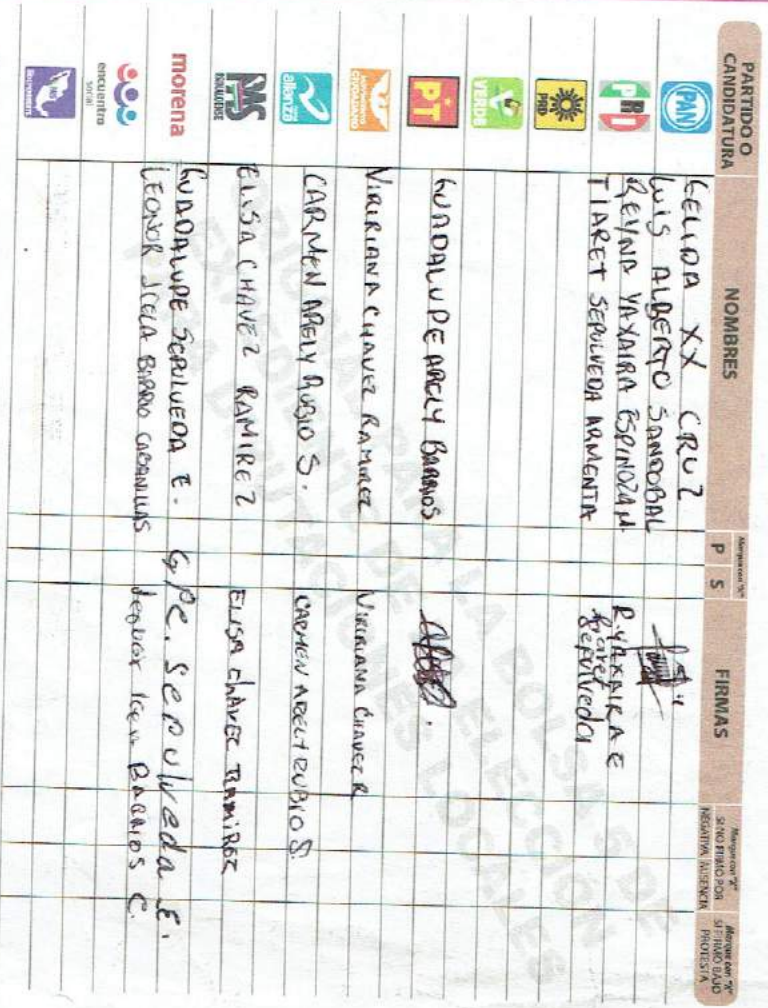 PARTIDO O CANDIDATURA
NOMBRES
Marque con "X"
P S
FIRMAS
Marque con "X" SI NO FIRMÓ POR
NEGATIVA AUSENCIA
Marque con "X" SI FIRMÓ BAJO PROTESTA
PAN
CELIDA XX CRUZ
LUIS ALBERTO SANDOBAL
PRI
REYNA YAXAIRA ESPINOZA M. R. YAXAIRA E
TIARET SEPULVEDA ARMENTA Tiaret Sepulveda
PRD
VERDE
PT
GUADALUPE ARELY BARRIOS
MOVIMIENTO CIUDADANO
VIRIRIANA CHAVEZ RAMIREZ VIRIRIANA CHAVEZ R
alianza
CARMEN ARELY RUBIO S. CARMEN ARELY RUBIO S.
PAS
SINALOENSE
ELISA CHAVEZ RAMIREZ ELISA CHAVEZ RAMIREZ
morena
GUADALUPE SEPULVEDA E. GPE. SEPULVEDA E.
LEONOR ICELA BARRIO CABANILLAS Leonor Icela BARRIOS C.
encuentro social
ORIGINAL PARA LA BOLSA DE
EXPEDIENTE DE LA ELECCIÓN
PARA DIPUTACIONES LOCALES